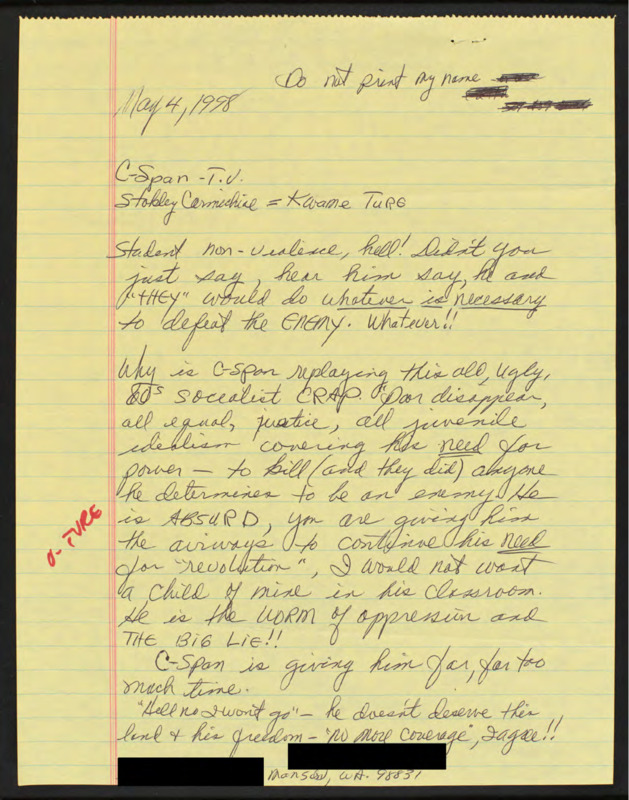 Do not print my name
May 4, 1998
C-Span - T.V.
Stokley Carmichial = Kwame TURE
Student non-violence, hell! Didn't you
just say, hear him say, he and
"THEY" would do whatever is necessary
to defeat the ENEMY. Whatever!!
Why is C-Span replaying this old, ugly,
60s Socealist CRAP. "Poor disappear,
all equal, justice, all juvenile
idealism covering his need for
power - to kill (and they did) anyone
he determines to be an enemy. He
is ABSURD, you are giving him
the airways to continue his need
for "revolution", I would not want
a child of mine in his classroom.
He is the WORM of oppression and
THE BIG LIE!!
C-Span is giving him far, far too
much time.
"Hell no I won't go" - he doesn't deserve this
land + his freedom - "no more coverage", I agree!!
WA. 98831
O- TURE